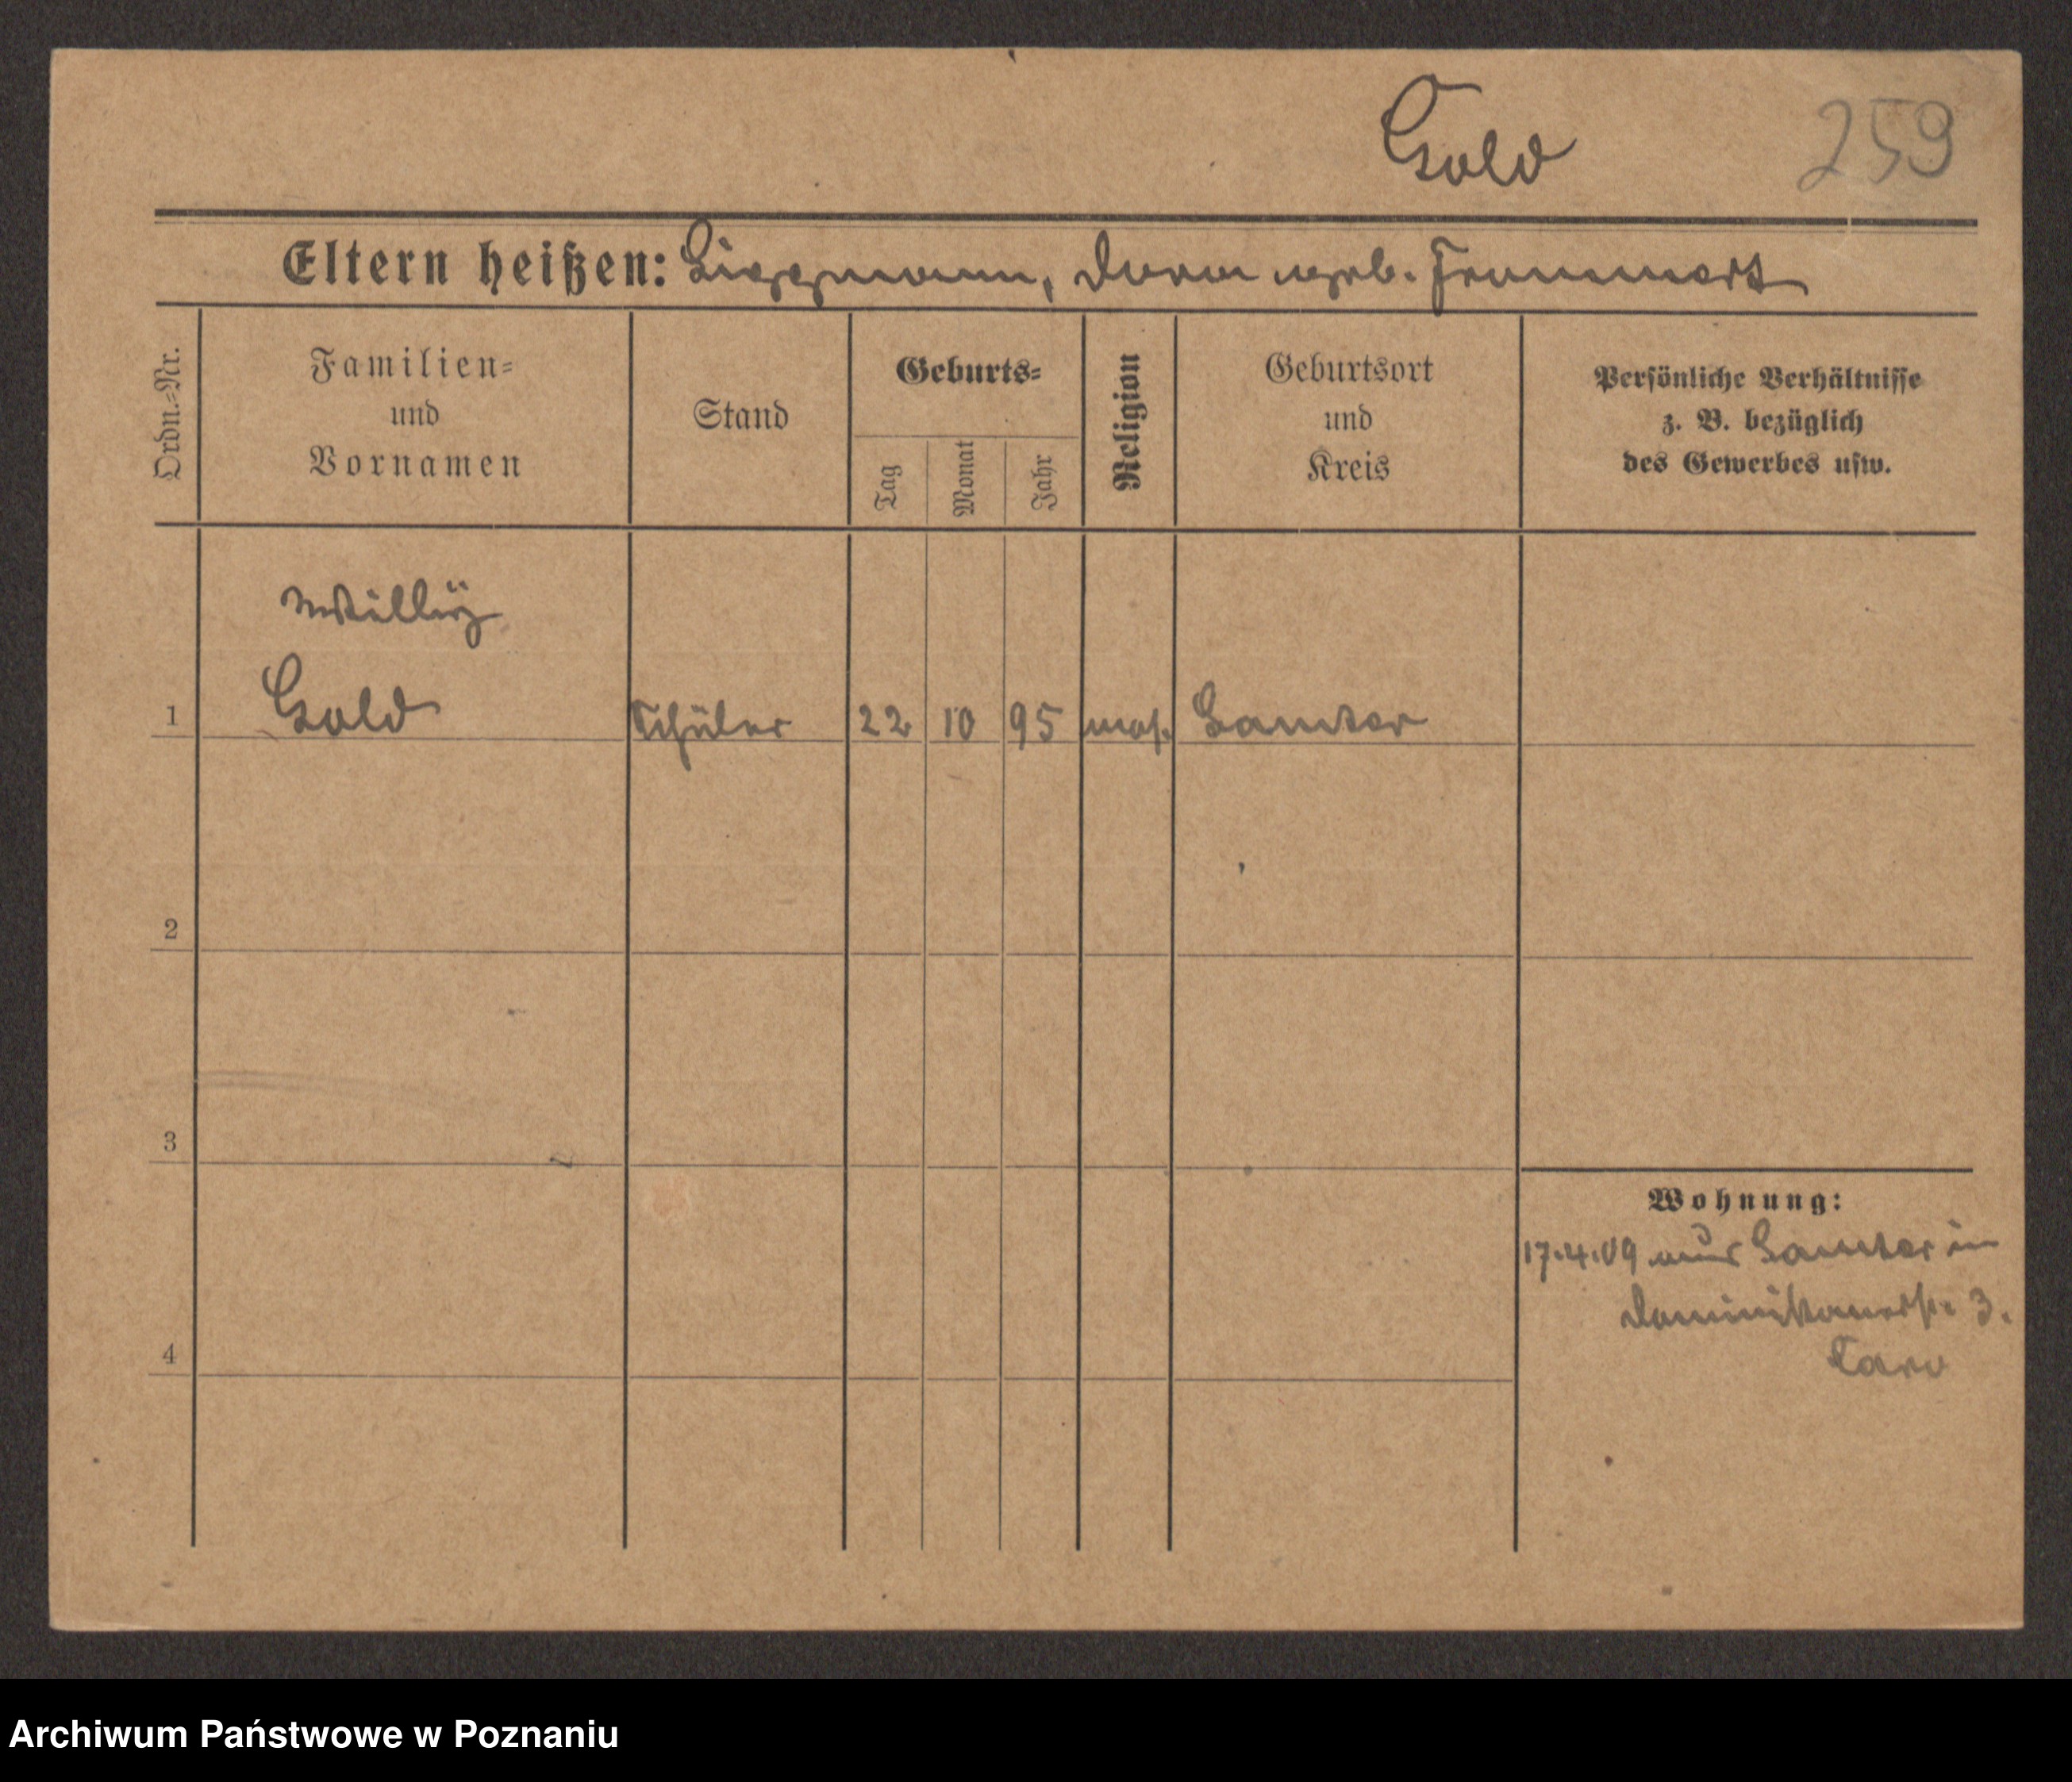 Gold
259
Eltern heißen: Liepmann, Dora geb.
Ordn.-Nr.
Familien-
und
Vornamen
Stand
Geburts-
Tag
Monat
Jahr
Religion
Geburtsort
und
Kreis
Persönliche Verhältnisse
z. B. bezüglich
des Gewerbes usw.
Willÿ
1 Gold Schüler 22 10 95 mos. Samter
2
3
4
Wohnung:
17.4.09 aus Samter in
Dominikanerstr. 3.
Caro
Archiwum Państwowe w Poznaniu